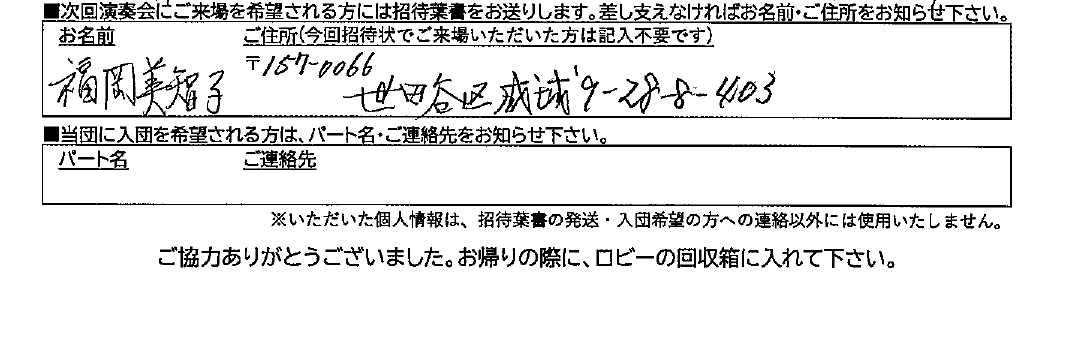 ■次回演奏会にご来場を希望される方には招待葉書をお送りします。差し支えなければお名前・ご住所をお知らせ下さい。
お名前 ご住所(今回招待状でご来場いただいた方は記入不要です)
〒157-0066
福岡美智子 世田谷区成城9-28-8-403
■当団に入団を希望される方は、パート名・ご連絡先をお知らせ下さい。
パート名 ご連絡先
※いただいた個人情報は、招待葉書の発送・入団希望の方への連絡以外には使用いたしません。
ご協力ありがとうございました。お帰りの際に、ロビーの回収箱に入れて下さい。